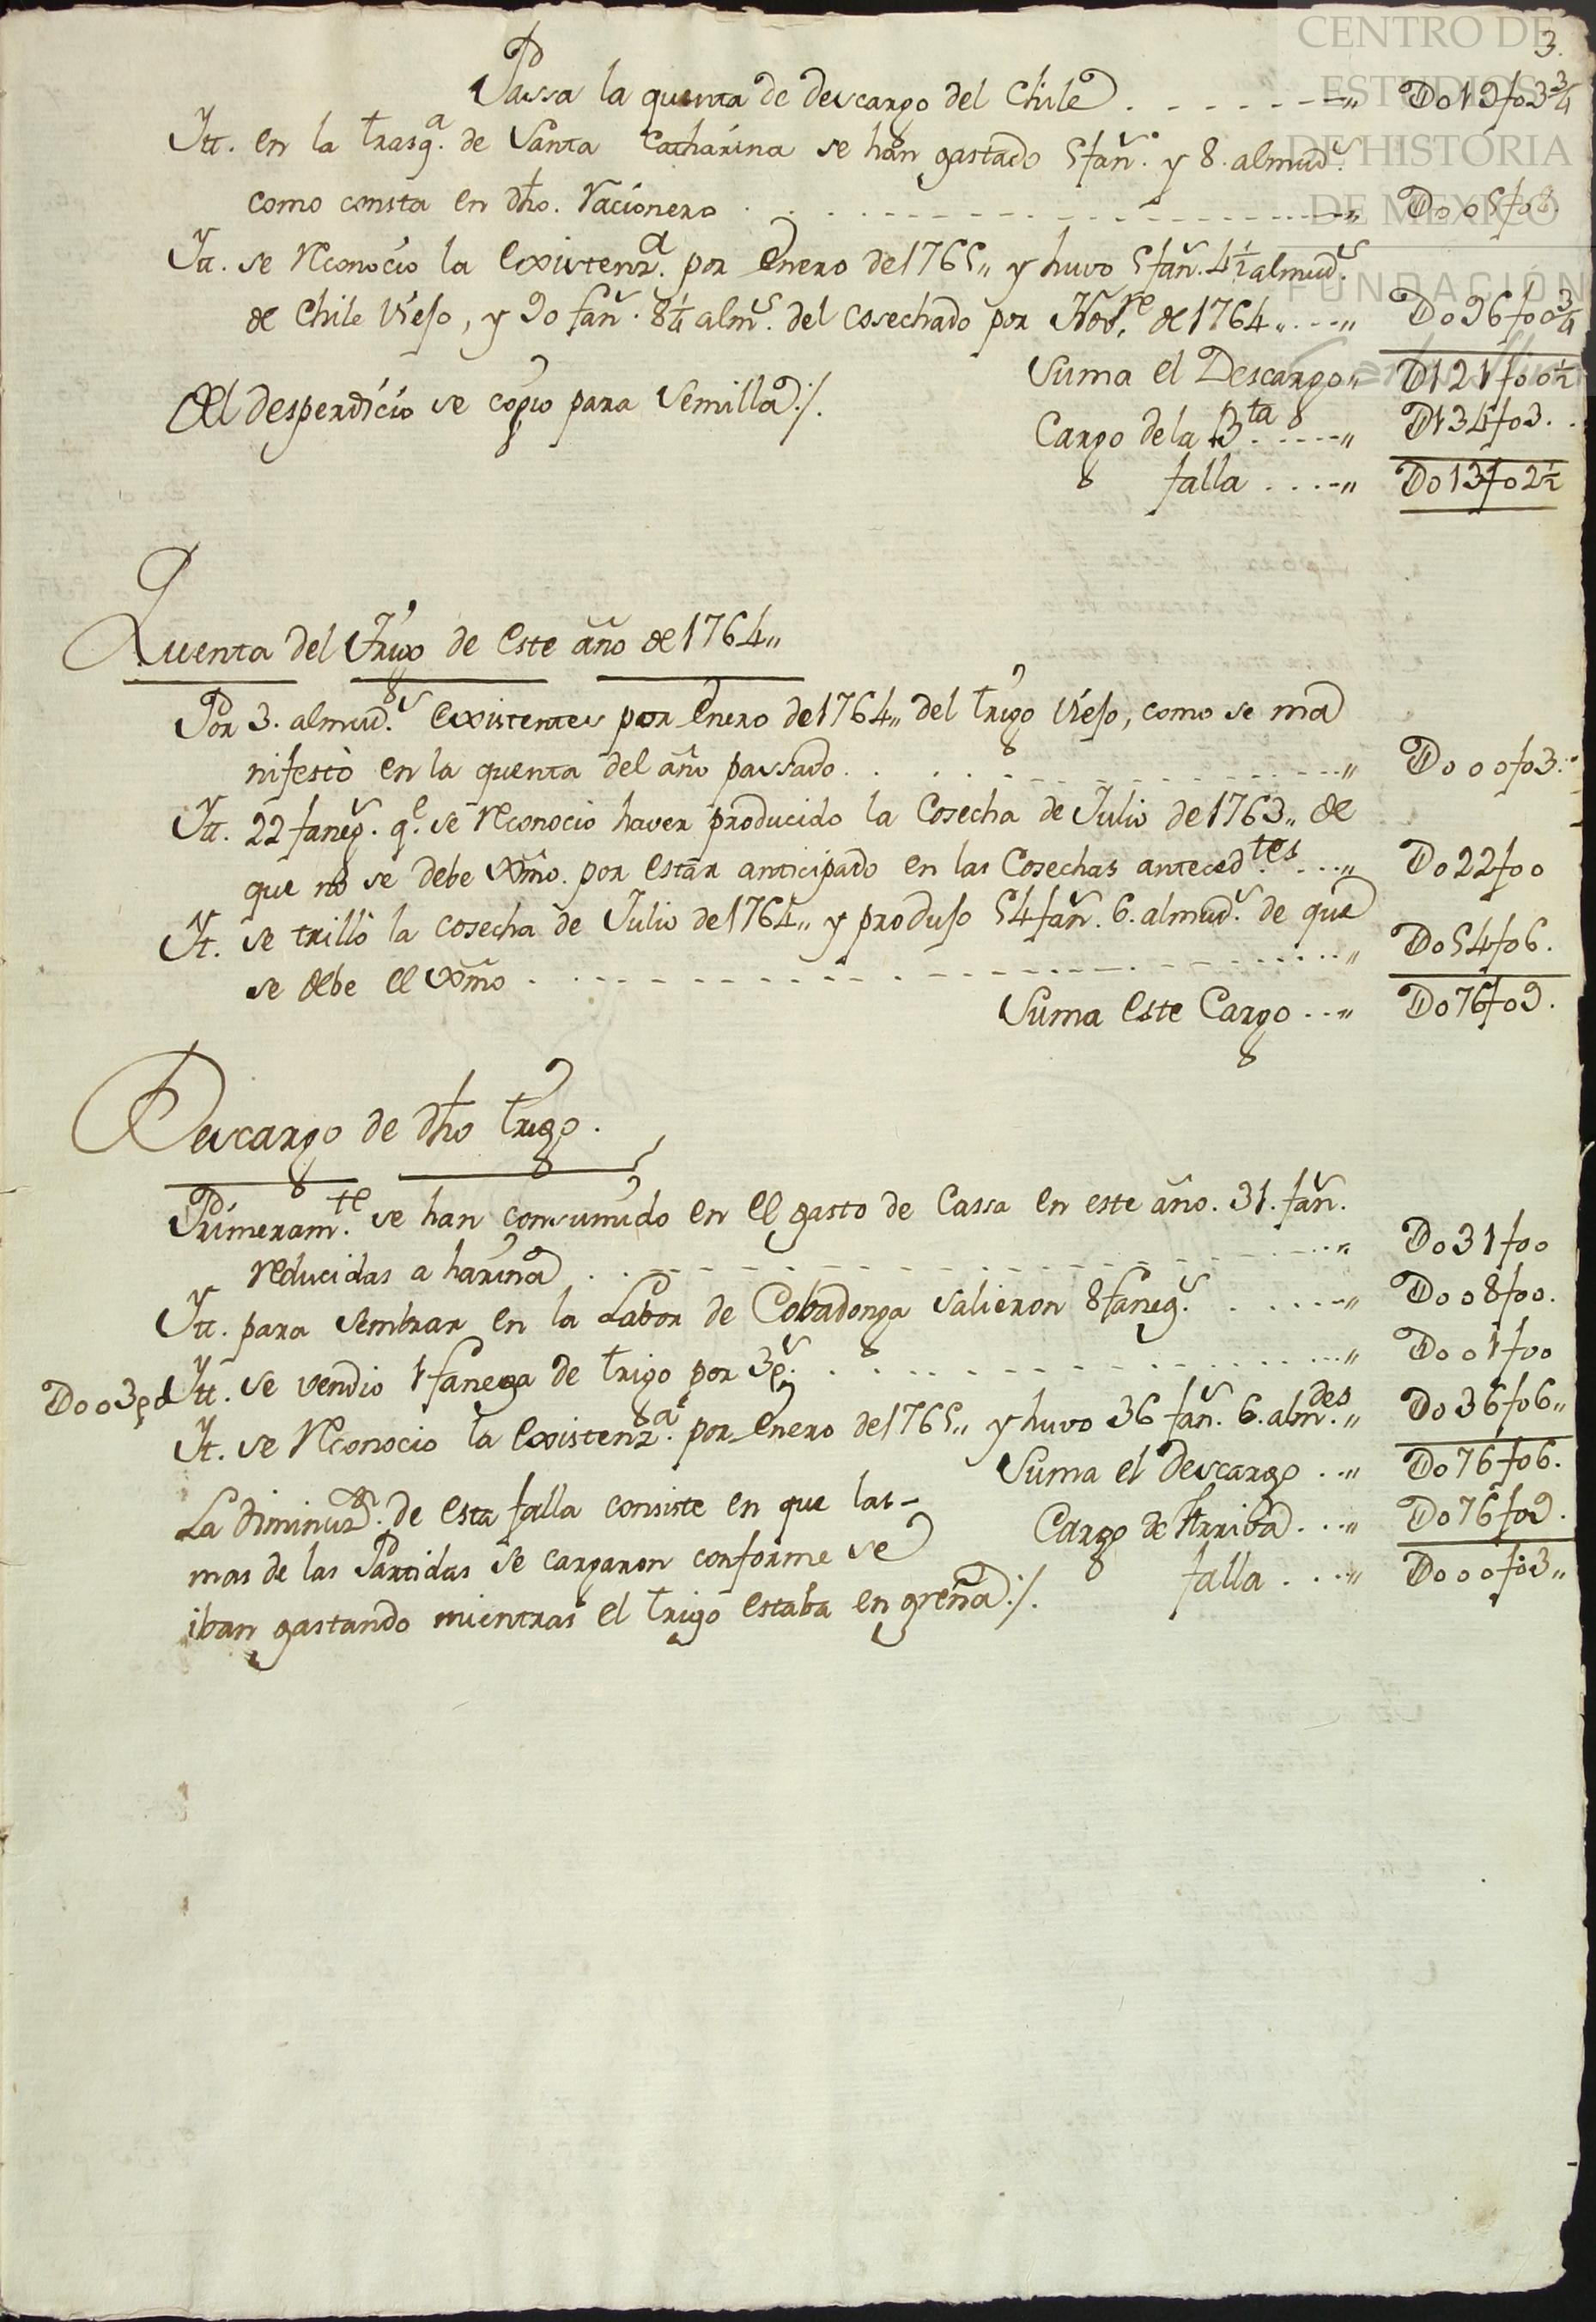 CENTRO DE
ESTUDIOS
DE HISTORIA
DE MEXICO
FUNDACIÓN
3.
Passa la quenta de descargo del Chile . . . . . . . „ D019f03¾
Ytt. en la trasq.ª de Santa Catharina se han gastado 5 fañ.s y 8. almud.s
como consta en dho. racionero . . . . . . . „ D005f08.
Ytt. se reconocio la Existenz.ª por Enero de 1765„ y huvo 5 fañ. 4½ almud.s
de Chile viejo, y 90 fañ. 8¼ alm.s del cosechado por Nov.re de 1764„ . . „ D096f00¾
Suma el Descargo„ D121f00½
El desperdicio se copio para Semilla./.
Cargo de la B.ta . . . . „ D134f03.
falla . . . . „ D013f02½
Quenta del Trigo de Este año de 1764„
Por 3. almud.s Existentes por Enero de 1764„ del trigo viejo, como se ma
nifestò en la quenta del año passado . . . . . . „ D000f03.
Ytt. 22 faneg.s q.e se reconocio haver producido la Cosecha de Julio de 1763„ de
que no se debe Dmo. por estar anticipado en las Cosechas anteced.tes . . . „ D022f00
Yt. se trillò la cosecha de Julio de 1764„ y produjo 54 fañ. 6. almud.s de que
se debe el Dmo . . . . . . . „ D054f06.
Suma este Cargo . . „ D076f09.
Descargo de dho trigo.
Primeram.te se han consumido en el gasto de Cassa en este año. 31. fañ.
reducidas a harina . . . . . . . „ D031f00
Ytt. para sembrar en la Labor de Cobadonga salieron 8 faneg.s . . . . „ D008f00.
D003p d Ytt. se vendio 1 fanega de trigo por 3p.s . . . . . . „ D001f00
Yt. se reconocio la Existenz.ª por Enero de 1765„ y huvo 36 fañ. 6. alm.des „ D036f06„
Suma el descargo . . „ D076f06.
La de esta falla consiste en que las-
Cargo de Arriba . . . „ D076f09.
mas de las Partidas se cargaron conforme se
falla . . . „ D000f03„
iban gastando mientras el trigo estaba en greña./.